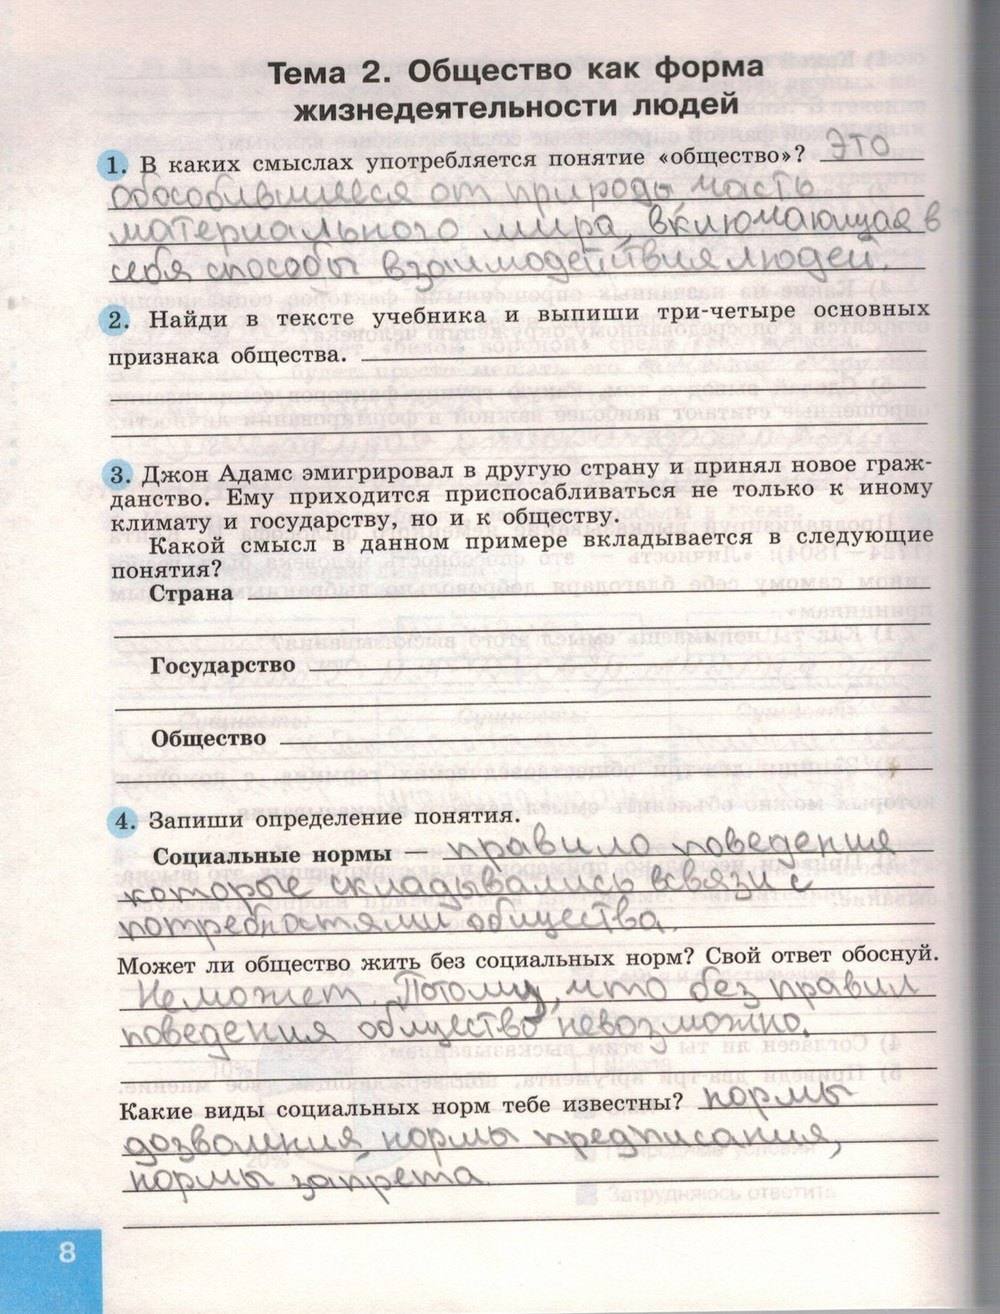 Тема 2. Общество как форма
жизнедеятельности людей
1. В каких смыслах употребляется понятие «общество»? Это
обособившееся от природы часть
материального мира, включающая в
себя способы взаимодействия людей.
2. Найди в тексте учебника и выпиши три-четыре основных
признака общества.
3. Джон Адамс эмигрировал в другую страну и принял новое граж-
данство. Ему приходится приспосабливаться не только к иному
климату и государству, но и к обществу.
Какой смысл в данном примере вкладывается в следующие
понятия?
Страна
Государство
Общество
4. Запиши определение понятия.
Социальные нормы правило поведения
которые складывались всвязи с
потребностями общества.
Может ли общество жить без социальных норм? Свой ответ обоснуй.
Не может. Потому, что без правил
поведения общество невозможно.
Какие виды социальных норм тебе известны? нормы
дозволения, нормы предписания,
нормы запрета.
8